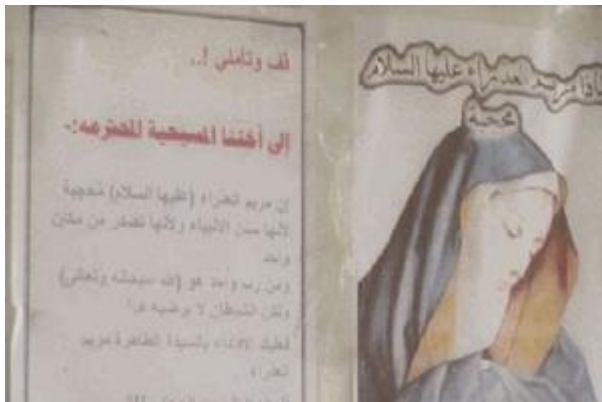 قف وتأملي !..
إلى أختنا المسيحية المحترمه :-
إن مريم العذراء (عليها السلام) مُحجبة
لأنها سنن الأنبياء ولأنها تصدر من مكان
واحد
ومن رب واحد هو (الله سبحانه وتعالى)
ولكن الشيطان لا يرضيه هذا
فعليك الاقتداء بالسيدة الطاهرة مريم
العذراء
مريم العذراء عليها السلام
محجبة